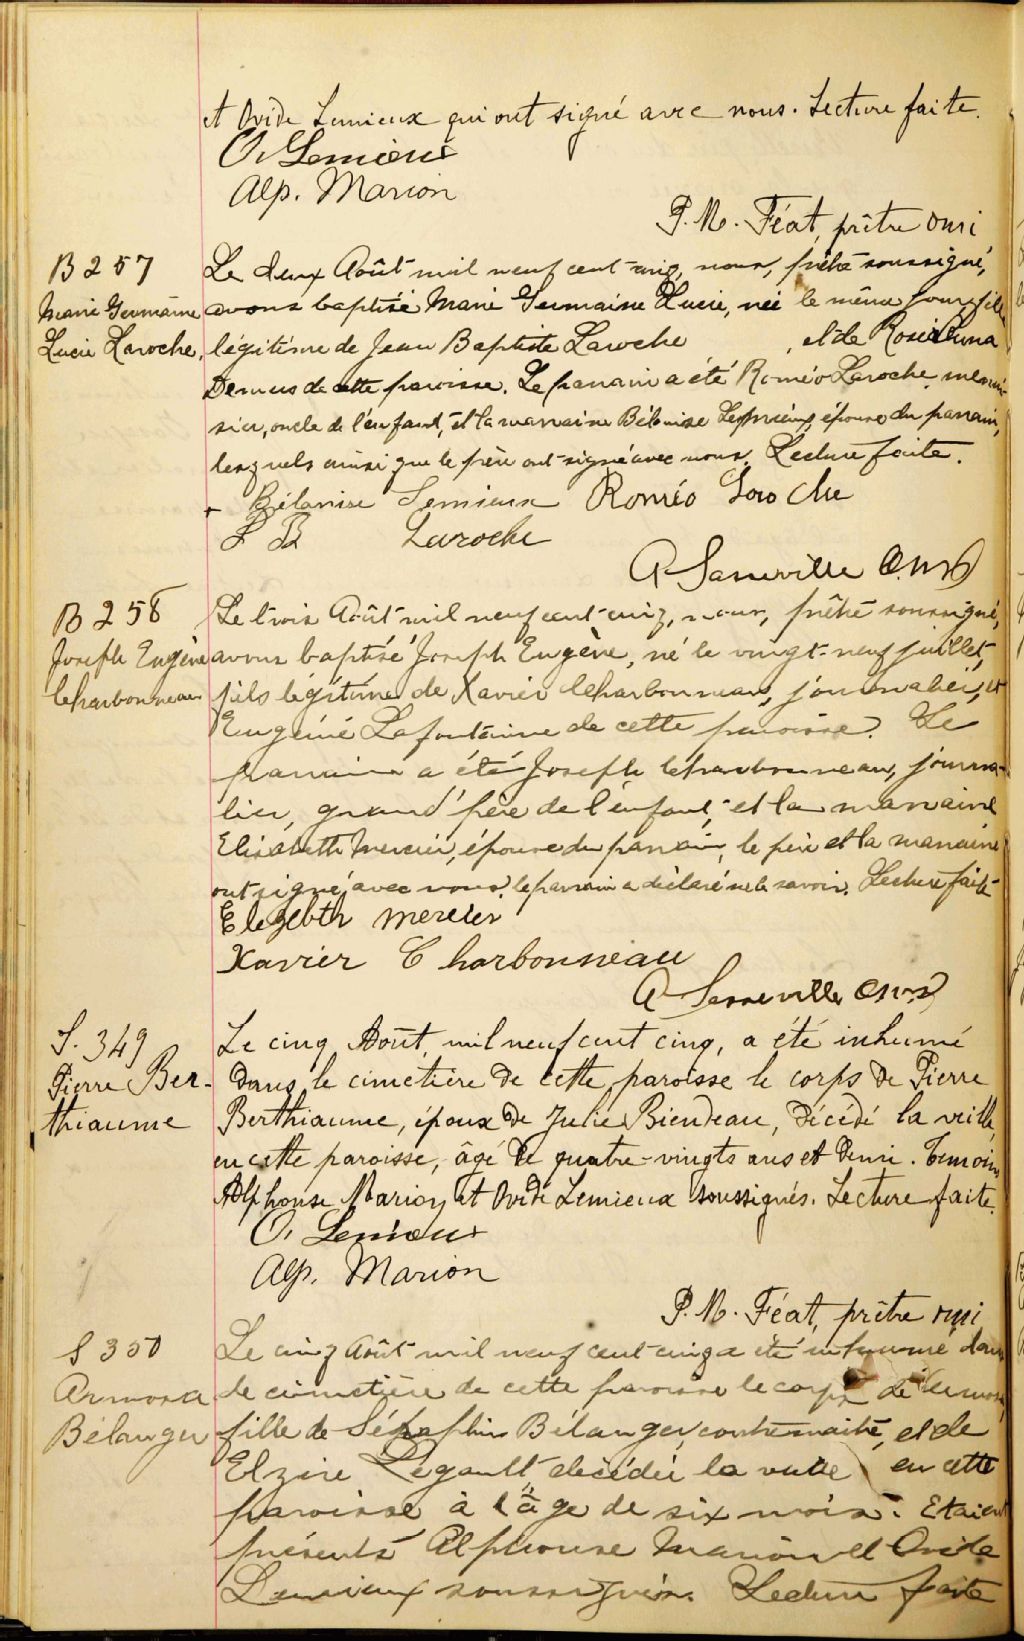 et Ovide Lemieux qui ont signé avec nous. Lecture faite.
O. Lemieux
Alp. Marion
P. M. Féat, prêtre omi
B 257
Marie Germaine
Lucie Laroche,
Le deux Août mil neuf cent-cinq, nous, prêtre soussigné,
avons baptisé Marie Germaine Lucie, née le même jour, fille
légitime de Jean Baptiste Laroche , et de Rose Anna
Demers de cette paroisse. Le parrain a été Roméo Laroche, menui-
sier, oncle de l'enfant, et la marraine Bélanise Lemieux, épouse du parrain,
lesquels ainsi que le père ont signé avec nous. Lecture faite.
Bélanise Lemieux Roméo Laroche
J B Laroche
A Sanneville O.M.I
B 258
Joseph Eugène
Charbonneau
Le trois Août mil neuf cent-cinq, nous, prêtre soussigné,
avons baptisé Joseph Eugène, né le vingt-neuf juillet,
fils légitime de Xavier Charbonneau, journalier, et
Eugénie Lafontaine de cette paroisse. Le
parrain a été Joseph Charbonneau, journa-
lier, grand'père de l'enfant, et la marraine
Elisabeth Mercier, épouse du parrain, le père et la marraine
ont signé avec nous, le parrain a déclaré ne le savoir. Lecture faite
Elezebth mercier
Xavier Charbonneau
A Senneville O.M.I
S. 349
Pierre Ber-
thiaume
Le cinq Août, mil neuf cent cinq, a été inhumé
dans le cimetière de cette paroisse le corps de Pierre
Berthiaume, époux de Julie Biendeau, décédé la veille,
en cette paroisse, âgé de quatre-vingts ans et demi. Témoins
Alphonse Marion et Ovide Lemieux soussignés. Lecture faite.
O. Lemieux
Alp. Marion
P. M. Féat, prêtre omi
S 350
Armosa
Bélanger
Le cinq Août mil neuf cent-cinq a été inhumé dans
le cimetière de cette paroisse le corps de
fille de Séraphin Bélanger, contremaître, et de
Elzire Legault, décédée la veille en cette
paroisse à l'âge de six mois. Etaient
présents Alphonse Marion et Ovide
Lemieux soussignés. Lecture faite